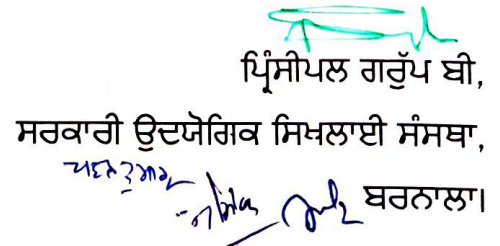 ਪ੍ਰਿੰਸੀਪਲ ਗਰੁੱਪ ਬੀ,
ਸਰਕਾਰੀ ਉਦਯੋਗਿਕ ਸਿਖਲਾਈ ਸੰਸਥਾ,
ਬਰਨਾਲਾ।